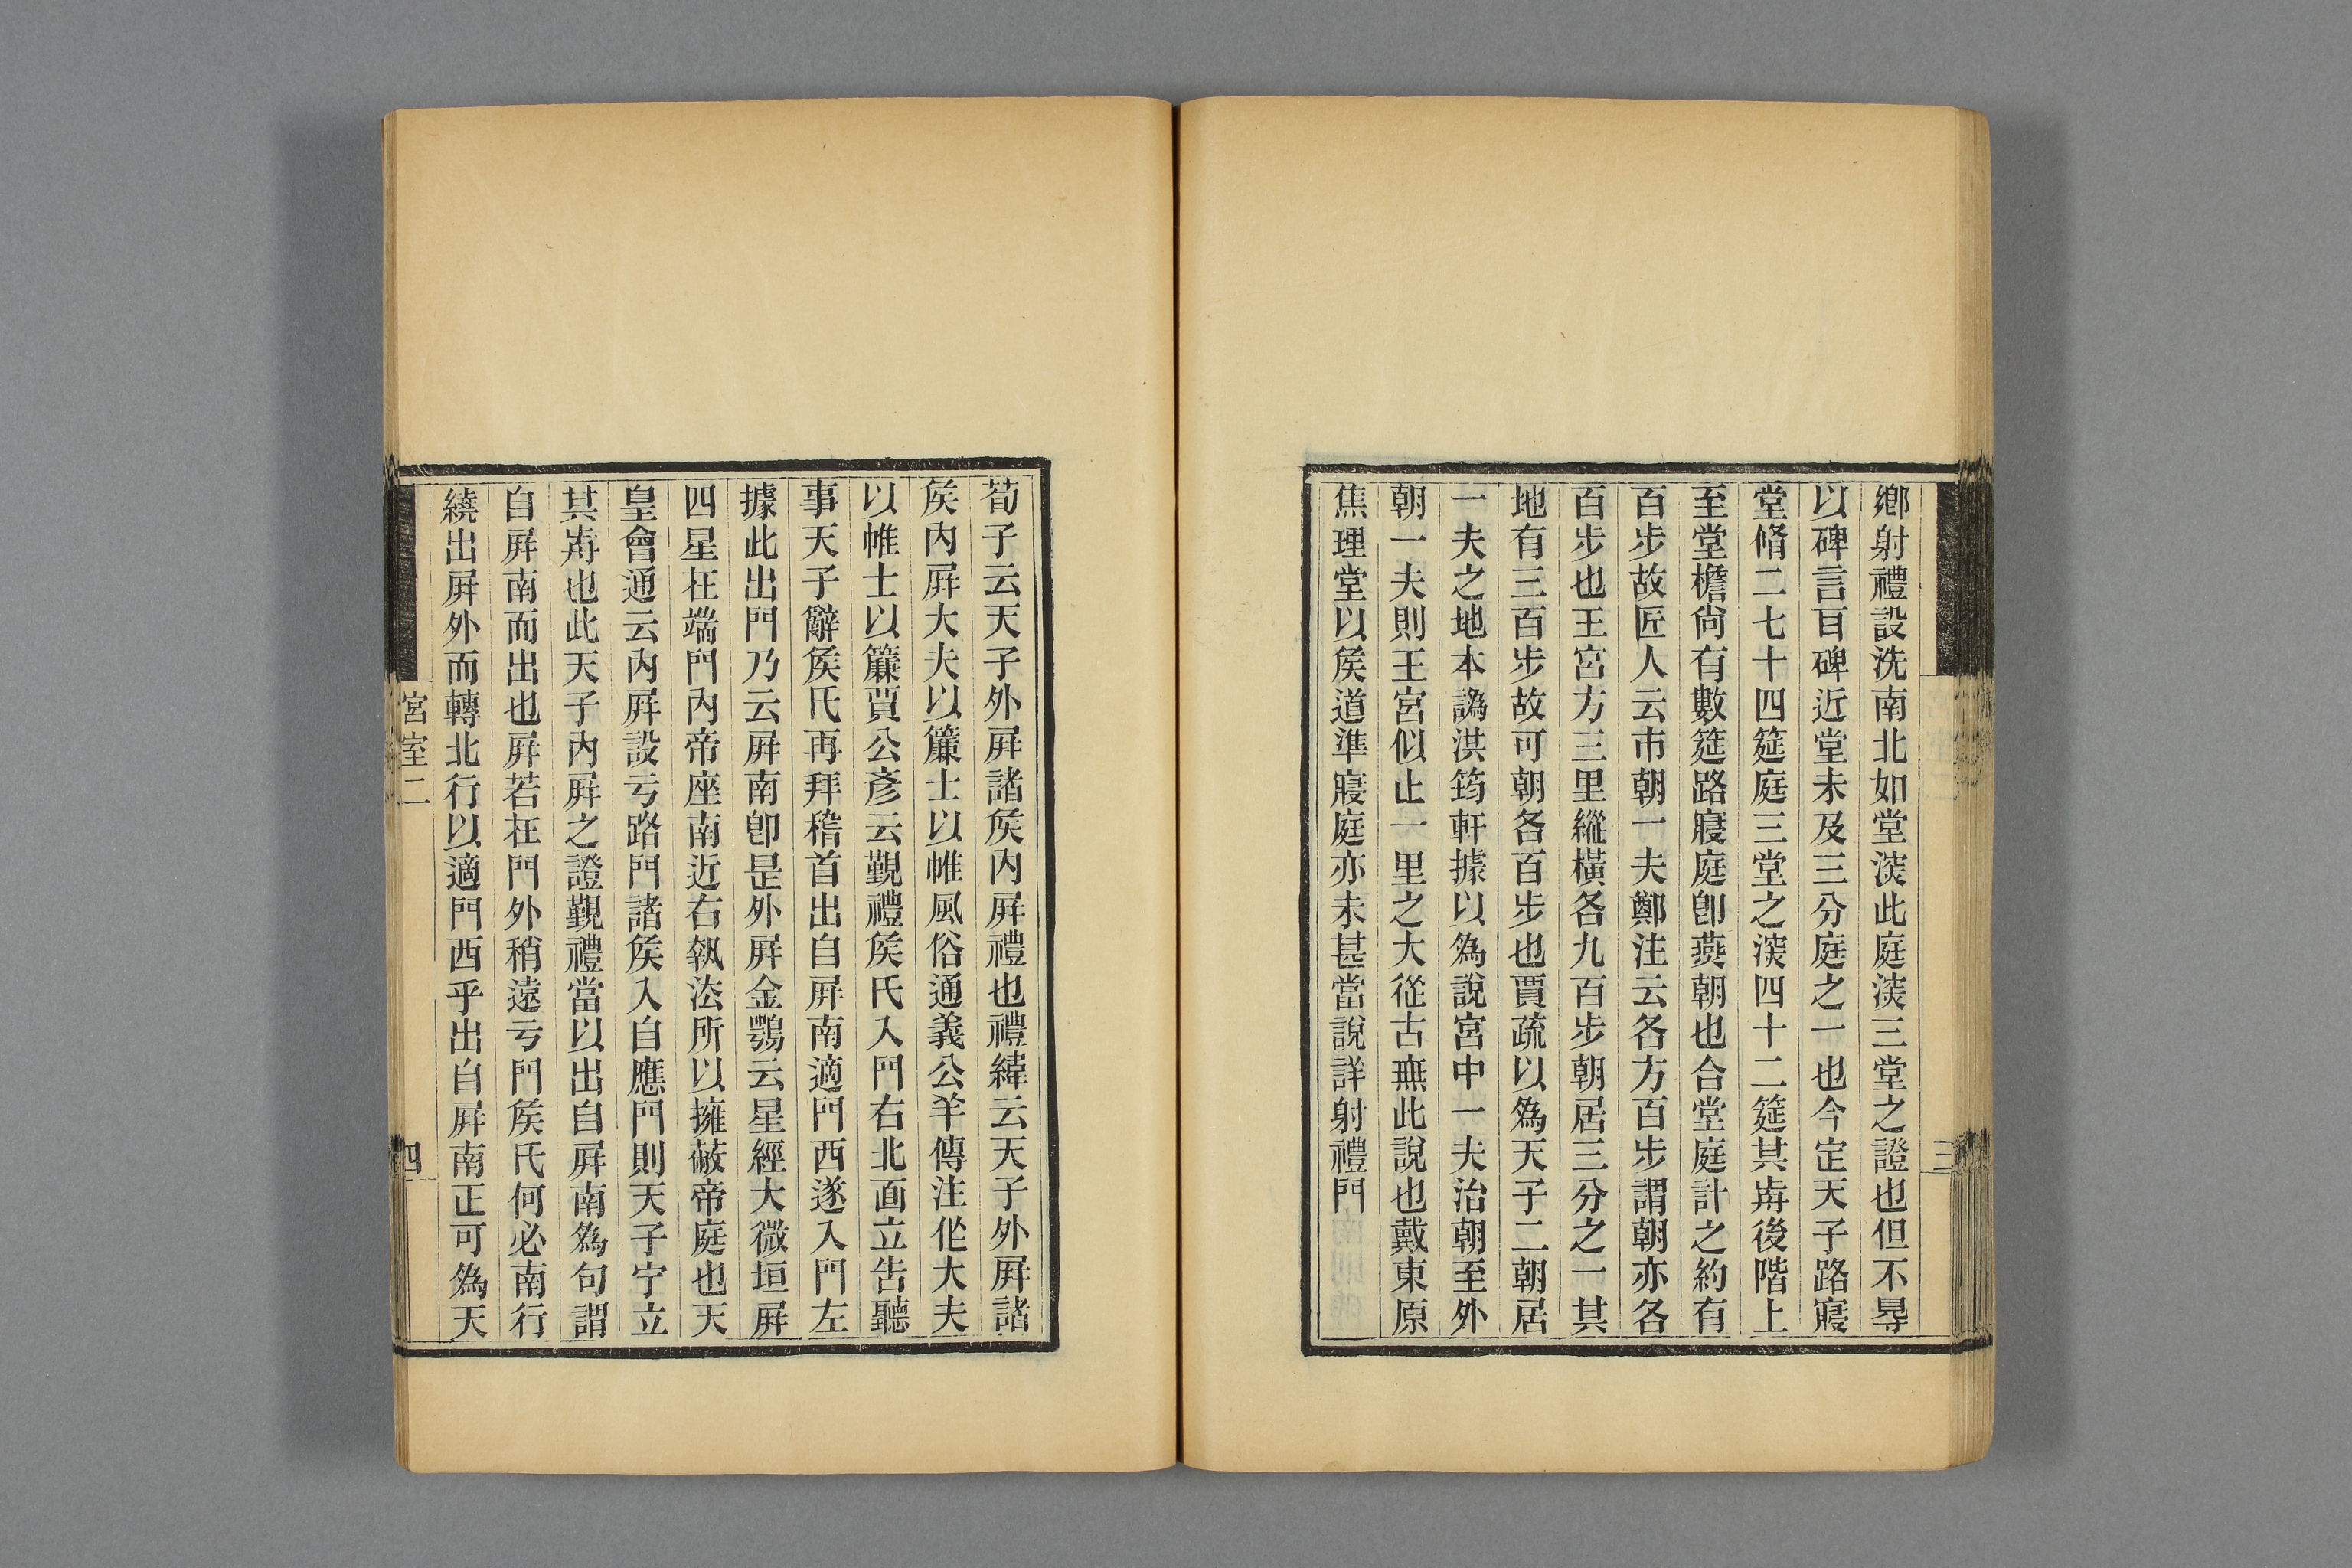 鄉射禮設洗南北如堂深此庭深三堂之證也但不㝵
以碑言百碑近堂未及三分庭之一也今定天子路寢
堂脩二七十四筵庭三堂之深四十二筵其歬後階上
至堂檐尙有數筵路寢庭卽燕朝也合堂庭計之約有
百步故匠人云市朝一夫鄭注云各方百步謂朝亦各
百步也王宮方三里縱橫各九百步朝居三分之一其
地有三百步故可朝各百步也賈疏以爲天子二朝居
一夫之地本譌洪筠軒據以爲說宮中一夫治朝至外
朝一夫則王宮似止一里之大從古無此說也戴東原
焦理堂以矦道準寢庭亦未甚當說詳射禮門
荀子云天子外屏諸矦內屏禮也禮緯云天子外屏諸
矦內屏大夫以簾士以帷風俗通義公羊傳注作大夫
以帷士以簾賈公彥云覲禮矦氏入門右北面立告聽
事天子辭矦氏再拜稽首出自屏南適門西遂入門左
據此出門乃云屏南卽是外屏金鶚云星經大微垣屏
四星在端門內帝座南近右執法所以擁蔽帝庭也天
皇會通云內屏設亏路門諸矦入自應門則天子宁立
其歬也此天子內屏之證覲禮當以出自屏南爲句謂
自屏南而出也屏若在門外稍遠亏門矦氏何必南行
繞出屏外而轉北行以適門西乎出自屏南正可爲天
宮室二
四
三